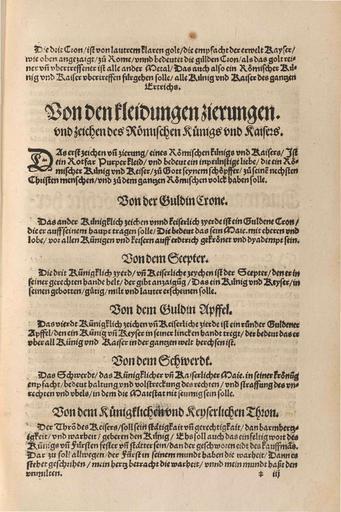 Die drit Cron / ist von lauterm klaren golt / die empfacht der erwelt Kayser /
wie oben angezaigt / zů Rome / vnnd bedeutet die gülden Cron / als das golt reiner
vñ vbertreffent ist alle ander Metal / Das auch also ein Römischer Künig
vnd Kaiser vbertreffen fürgehen solle / alle Künig vnd Kaiser des ganzen
Ertrichs.
Von den kleidungen zierungen.
vnd zeichen des Römischen Künigs vnd Kaisers.
DAs erst zeichen vñ zierung / eines Römischen künigs vnd Kaisers / Ist
ein Rotfar Purper kleid / vnd bedeut ein inprünstige liebe / die ein Römischer
Künig vnd Keiser / zů Gott seynem schöpffer / zů seinē nechsten
Christen menschen / vnd zů dem ganzen Römischen volck haben solle.
Von der Guldin Crone.
Das ander Künigklich zeichen vnnd keiserlich zyerde ist ein Guldene Cron /
die er auff seinem haupt tragen solle / Die bedeut das sein Maie. mit eheren vnd
lobe / vor allen Künigen vnd keisern auff erdtrich gekrönet vnd dyademps sein.
Von dem Scepter.
Die drit Künigklich zyerd / vñ Keiserliche zeychen ist der Scepter / den er in
seiner gerechten hande helt / der gibt anzaigūg / Das ein Künig vnd Keyser / in
seinen gebotten / gütig / milt vnd lauter erscheinen solle.
Von dem Guldin Apffel.
Das vierdt Künigklich zeychen vñ Keiserliche zyerde ist ein runder Guldener
Apffel / den ein Künig vñ Keyser in seiner lincken handt tregt / der bedeut das er
vber all Künig vnd Kaiser in der ganzen welt herschen ist.
Von dem Schwerdt.
Das Schwerdt / das Künigklicher vñ Kaiserlicher Maie. in seiner krönūg
enpfacht / bedeut haltung vnd volstreckung des rechten / vnd straffung des vnrechten
vnd vbels / in dem die Maiestat nit seumig sein solle.
Von dem Künigklichen vnd Keyserlichen Thron.
Der Thrō des Keisers / soll sein stätigkait vñ gerechtigkait / dan barmherzigkeit /
vnd warheit / geberen den Künig / Ehs soll auch das einfeltig wort des
Künigs vñ Fürsten fester vñ stätter sein / dan der geschworen eidt des kauffmās.
Dar zů soll allwegen / der Fürst in seinem mund haben die warheit / Dann es
stehet geschriben / mein herz betracht die warheit / vnnd mein mundt haßt den
vnmilten. * iij